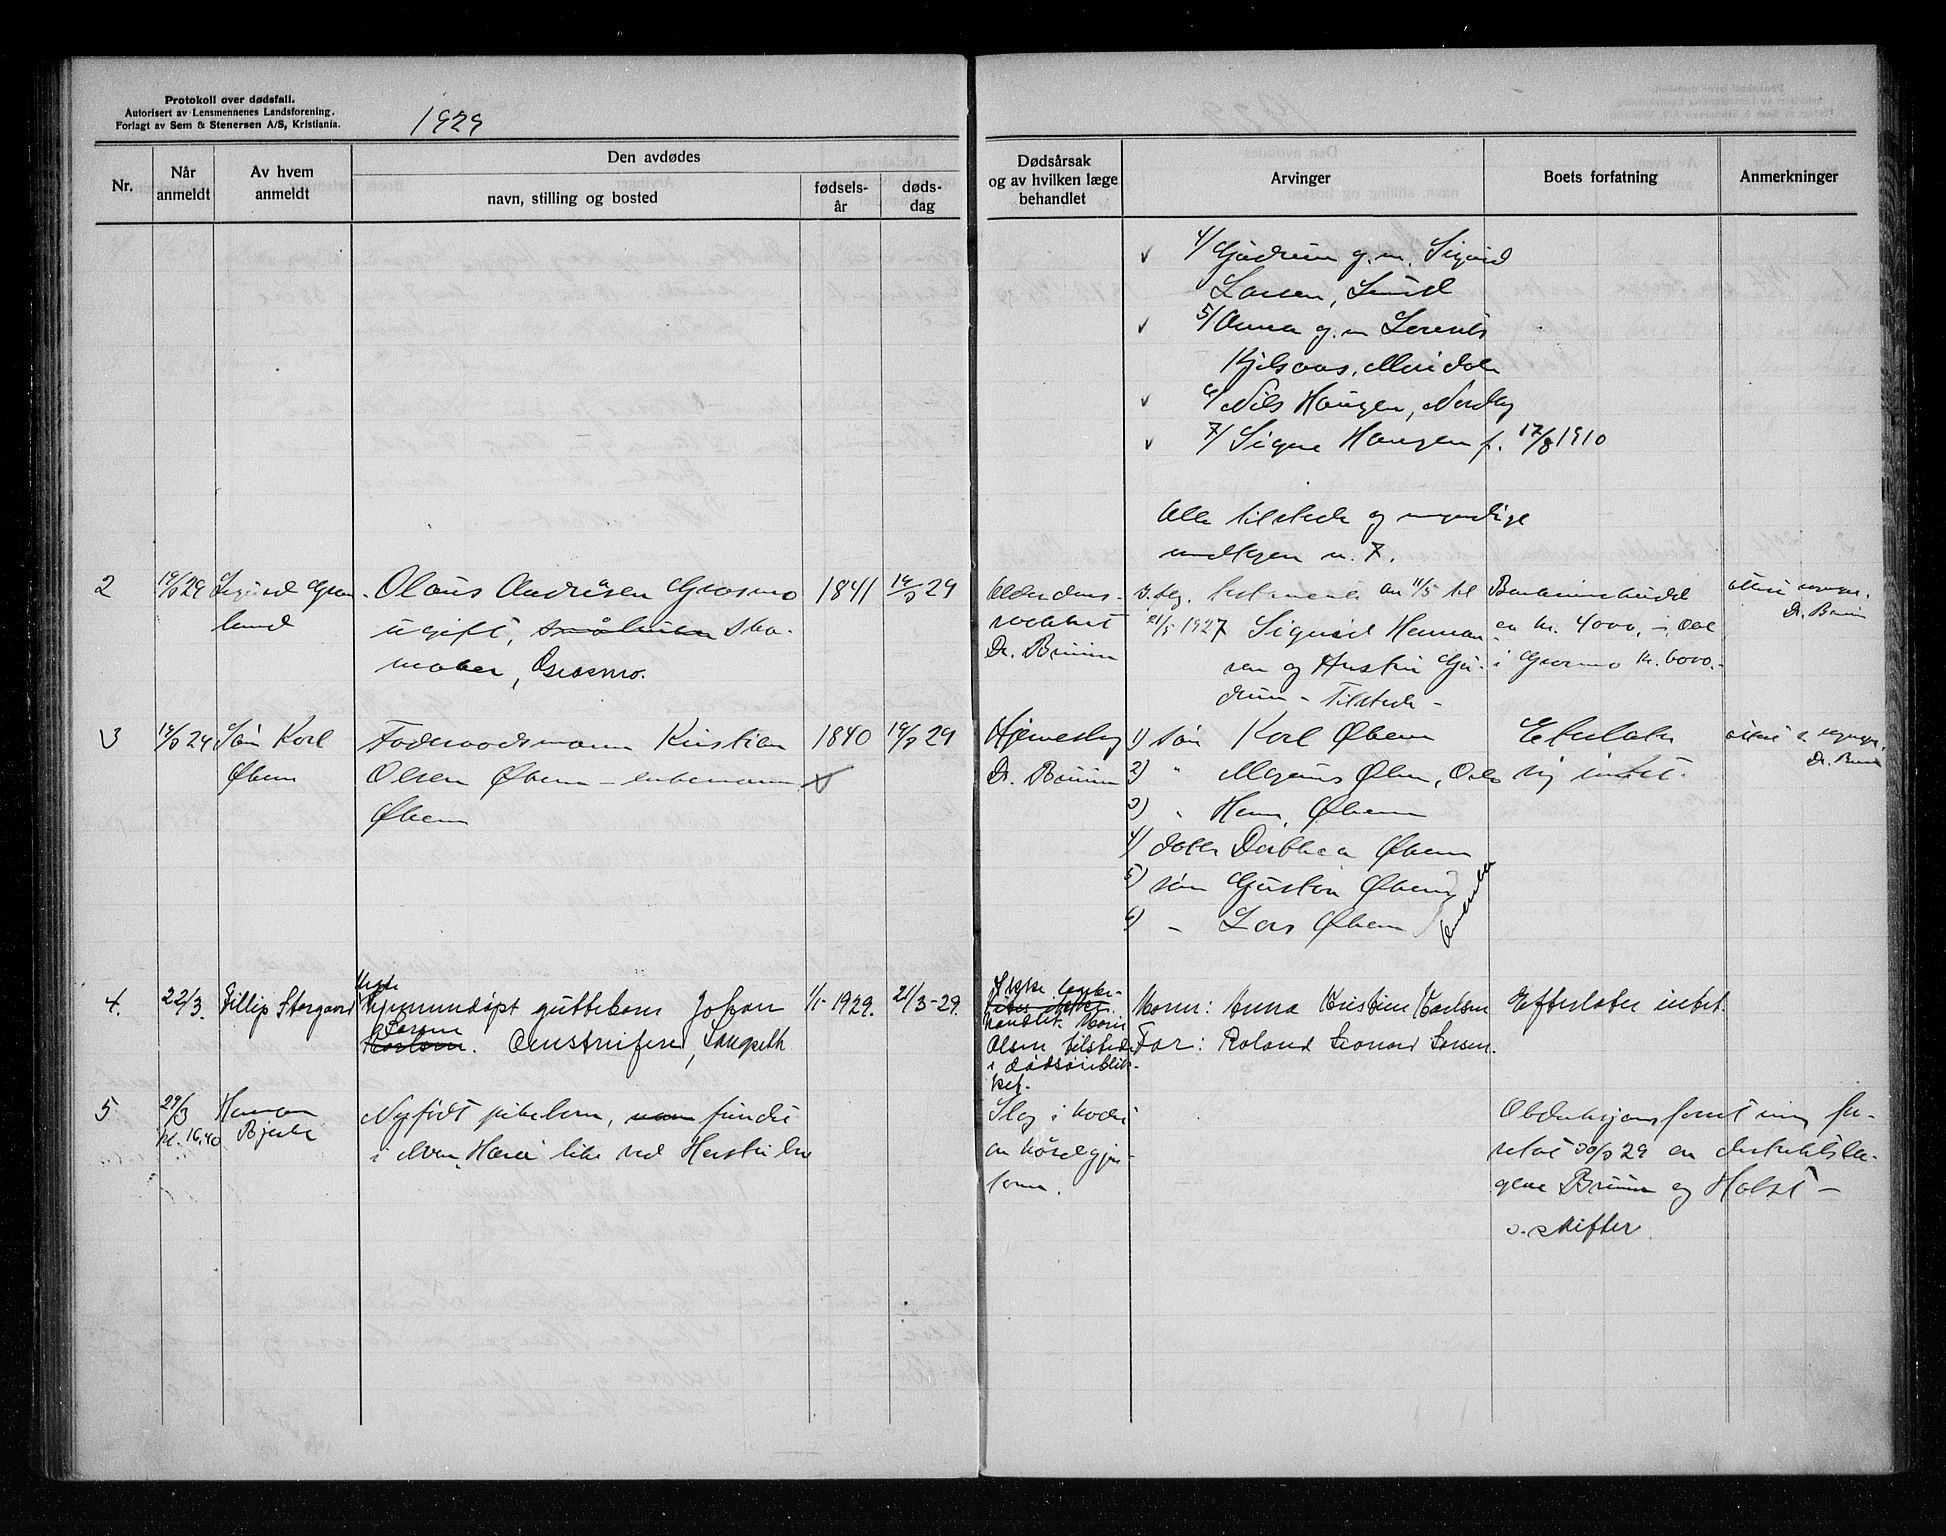 Protokoll over dødsfall.
Autorisert av Lensmennenes Landsforening.
Forlagt av Sem & Stenersen A/S, Kristiania.
1929
Nr.
Når anmeldt
Av hvem anmeldt
Den avdødes
navn, stilling og bosted
fødsels-år
døds-dag
Dødsårsak
og av hvilken læge
behandlet
Arvinger
Boets forfatning
Anmerkninger
4/ Gudrun g.m. Sigurd
Larsen, Lund
5/ Anna g.m. Lorents
Kjelsaas,
6/ Nils Haugen, Nordby
7/ Signe Haugen f. 17/8 1910
Alle tilstede og myndige
undtagen n. 7.
2
19/3 29
Sigurd Grøn-
land
Olaus Andresen Grasmo
ugift, sko-
maker, Grasmo.
1841
19/3 29
Alderdoms-
svakhet
Dr. Bruun
testament av 11/5 til
1927 Sigurd Herman-
sen og Hustru Gu-
drun - Tilstede -
Bankinnskudd
ca kr. 4000,-, del
i Grasmo kr. 6000.-
Dr. Bruun
3
19/3 29
Søn Karl
Øbern
Føderaadsmann Kristian
Olsen Øbern - enkemann
Øbern
1840
19/3 29
Hjerneslag
Dr. Bruun
1) søn Karl Øbern
2) " Magnus Øbern, Oslo
3) " Hans, Øbern
4) datter Dorthea Øbern
5) søn Gustav Øbern
6) - Lars Øbern
Amerika
Efterlater
sig intet.
Dr. Bruun
4.
22/3.
Fillip Storgaard
Hjemmedøpt guttebarn Johan
Larsen
Karlsen. Langseth
1/1-1929.
21/3-29.
Ikke lægebe-
handlet.
Olsen tilstede
i dødsøieblik-
ket.
Morr: Anna Kristine Karlsen
Far: Roland Leonard Larsen.
Efterlater intet.
5
29/3
kl. 16,40
Herman
Bjerke
Nyfødt pikebarn, fundet
i elven ved
Slag i hodet
Obduksjonsforretning fo-
retat 30/3 29 av distriktslæ-
gene Bruun og Holst -